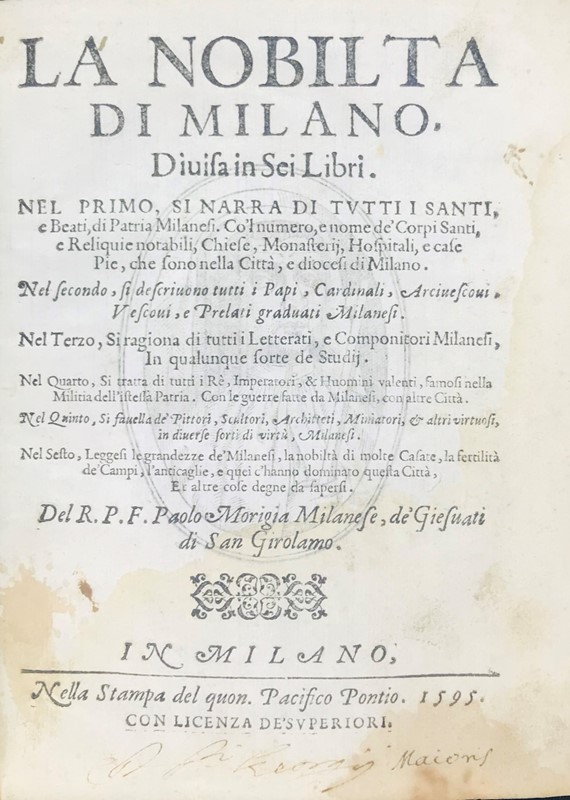 LA NOBILTA
DI MILANO.
Diuisa in Sei Libri.
NEL PRIMO, SI NARRA DI TVTTI I SANTI,
e Beati, di Patria Milanesi. Co'l numero, e nome de' Corpi Santi,
e Reliquie notabili, Chiese, Monasterij, Hospitali, e case
Pie, che sono nella Città, e diocesi di Milano.
Nel secondo, si descriuono tutti i Papi, Cardinali, Arciuescoui,
Vescoui, e Prelati graduati Milanesi.
Nel Terzo, Si ragiona di tutti i Letterati, e Componitori Milanesi,
In qualunque sorte de Studij.
Nel Quarto, Si tratta di tutti i Rè, Imperatori, & Huomini valenti, famosi nella
Militia dell'istessa Patria. Con le guerre fatte da Milanesi, con altre Città.
Nel Quinto, Si fauella de' Pittori, Scultori, Architteti, Miniatori, & altri virtuosi,
in diuerse sorti di virtù, Milanesi.
Nel Sesto, Leggesi le grandezze de' Milanesi, la nobiltà di molte Casate, la fertilità
de' Campi, l'anticaglie, e quei c'hanno dominato questa Città,
Et altre cose degne da sapersi.
Del R. P. F. Paolo Morigia Milanese, de' Giesuati
di San Girolamo.
IN MILANO,
Nella Stampa del quon. Pacifico Pontio. 1595.
CON LICENZA DE' SVPERIORI.